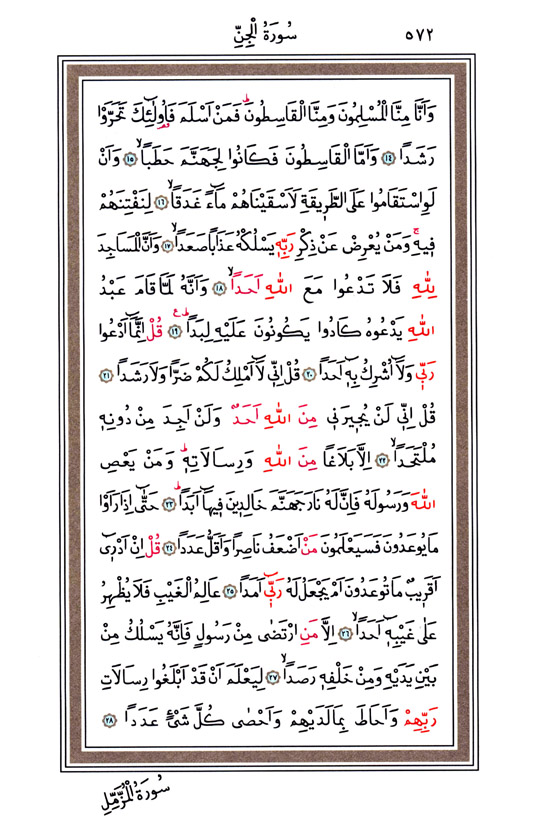 سُورَةُ الْجِنِّ ٥٧٢
وَاَنَّا مِنَّا الْمُسْلِمُونَ وَمِنَّا الْقَاسِطُونَۜ فَمَنْ اَسْلَمَ فَاُو۬لٰٓئِكَ تَحَرَّوْا
رَشَداً ﴿١٤﴾ وَاَمَّا الْقَاسِطُونَ فَكَانُوا لِجَهَنَّمَ حَطَباًۙ ﴿١٥﴾ وَاَنْ
لَوِ اسْتَقَامُوا عَلَى الطَّر۪يقَةِ لَاَسْقَيْنَاهُمْ مَٓاءً غَدَقاًۙ ﴿١٦﴾ لِنَفْتِنَهُمْ
ف۪يهِۜ وَمَنْ يُعْرِضْ عَنْ ذِكْرِ رَبِّه۪ يَسْلُكْهُ عَذَاباً صَعَداًۙ ﴿١٧﴾ وَاَنَّ الْمَسَاجِدَ
لِلّٰهِ فَلَا تَدْعُوا مَعَ اللّٰهِ اَحَداًۙ ﴿١٨﴾ وَاَنَّهُ لَمَّا قَامَ عَبْدُ
اللّٰهِ يَدْعُوهُ كَادُوا يَكُونُونَ عَلَيْهِ لِبَداًۜ ﴿١٩﴾ قُلْ اِنَّمَٓا اَدْعُوا
رَبّ۪ي وَلَٓا اُشْرِكُ بِه۪ٓ اَحَداً ﴿٢٠﴾ قُلْ اِنّ۪ي لَٓا اَمْلِكُ لَكُمْ ضَراًّ وَلَا رَشَداً ﴿٢١﴾
قُلْ اِنّ۪ي لَنْ يُج۪يرَن۪ي مِنَ اللّٰهِ اَحَدٌ وَلَنْ اَجِدَ مِنْ دُونِه۪
مُلْتَحَداًۙ ﴿٢٢﴾ اِلَّا بَلَاغاً مِنَ اللّٰهِ وَرِسَالَاتِه۪ۜ وَمَنْ يَعْصِ
اللّٰهَ وَرَسُولَهُ فَاِنَّ لَهُ نَارَ جَهَنَّمَ خَالِد۪ينَ ف۪يهَٓا اَبَداًۜ ﴿٢٣﴾ حَتّٰٓى اِذَا رَاَوْا
مَا يُوعَدُونَ فَسَيَعْلَمُونَ مَنْ اَضْعَفُ نَاصِراً وَاَقَلُّ عَدَداً ﴿٢٤﴾ قُلْ اِنْ اَدْر۪ٓي
اَقَر۪يبٌ مَا تُوعَدُونَ اَمْ يَجْعَلُ لَهُ رَبّ۪ٓي اَمَداً ﴿٢٥﴾ عَالِمُ الْغَيْبِ فَلَا يُظْهِرُ
عَلٰى غَيْبِه۪ٓ اَحَداًۙ ﴿٢٦﴾ اِلَّا مَنِ ارْتَضٰى مِنْ رَسُولٍ فَاِنَّهُ يَسْلُكُ مِنْ
بَيْنِ يَدَيْهِ وَمِنْ خَلْفِه۪ رَصَداًۙ ﴿٢٧﴾ لِيَعْلَمَ اَنْ قَدْ اَبْلَغُوا رِسَالَاتِ
رَبِّهِمْ وَاَحَاطَ بِمَا لَدَيْهِمْ وَاَحْصٰى كُلَّ شَيْءٍ عَدَداً ﴿٢٨﴾
سُورَةُ الْمُزَّمِّلِ